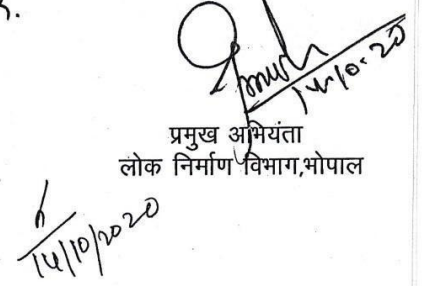 14-10-20
प्रमुख अभियंता
लोक निर्माण विभाग,भोपाल
14/10/2020